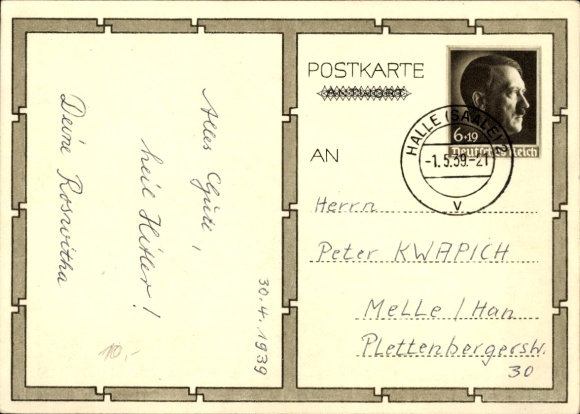 Alles Gute,
heil Hitler!
Deine Roswitha
30.4.1939
10,-
POSTKARTE
ANTWORT
AN
6+19
Deutsches Reich
HALLE (SAALE) 2
-1.5.39.-21
v
Herrn
Peter KWAPICH
Melle / Han
Plettenbergerstr.
30